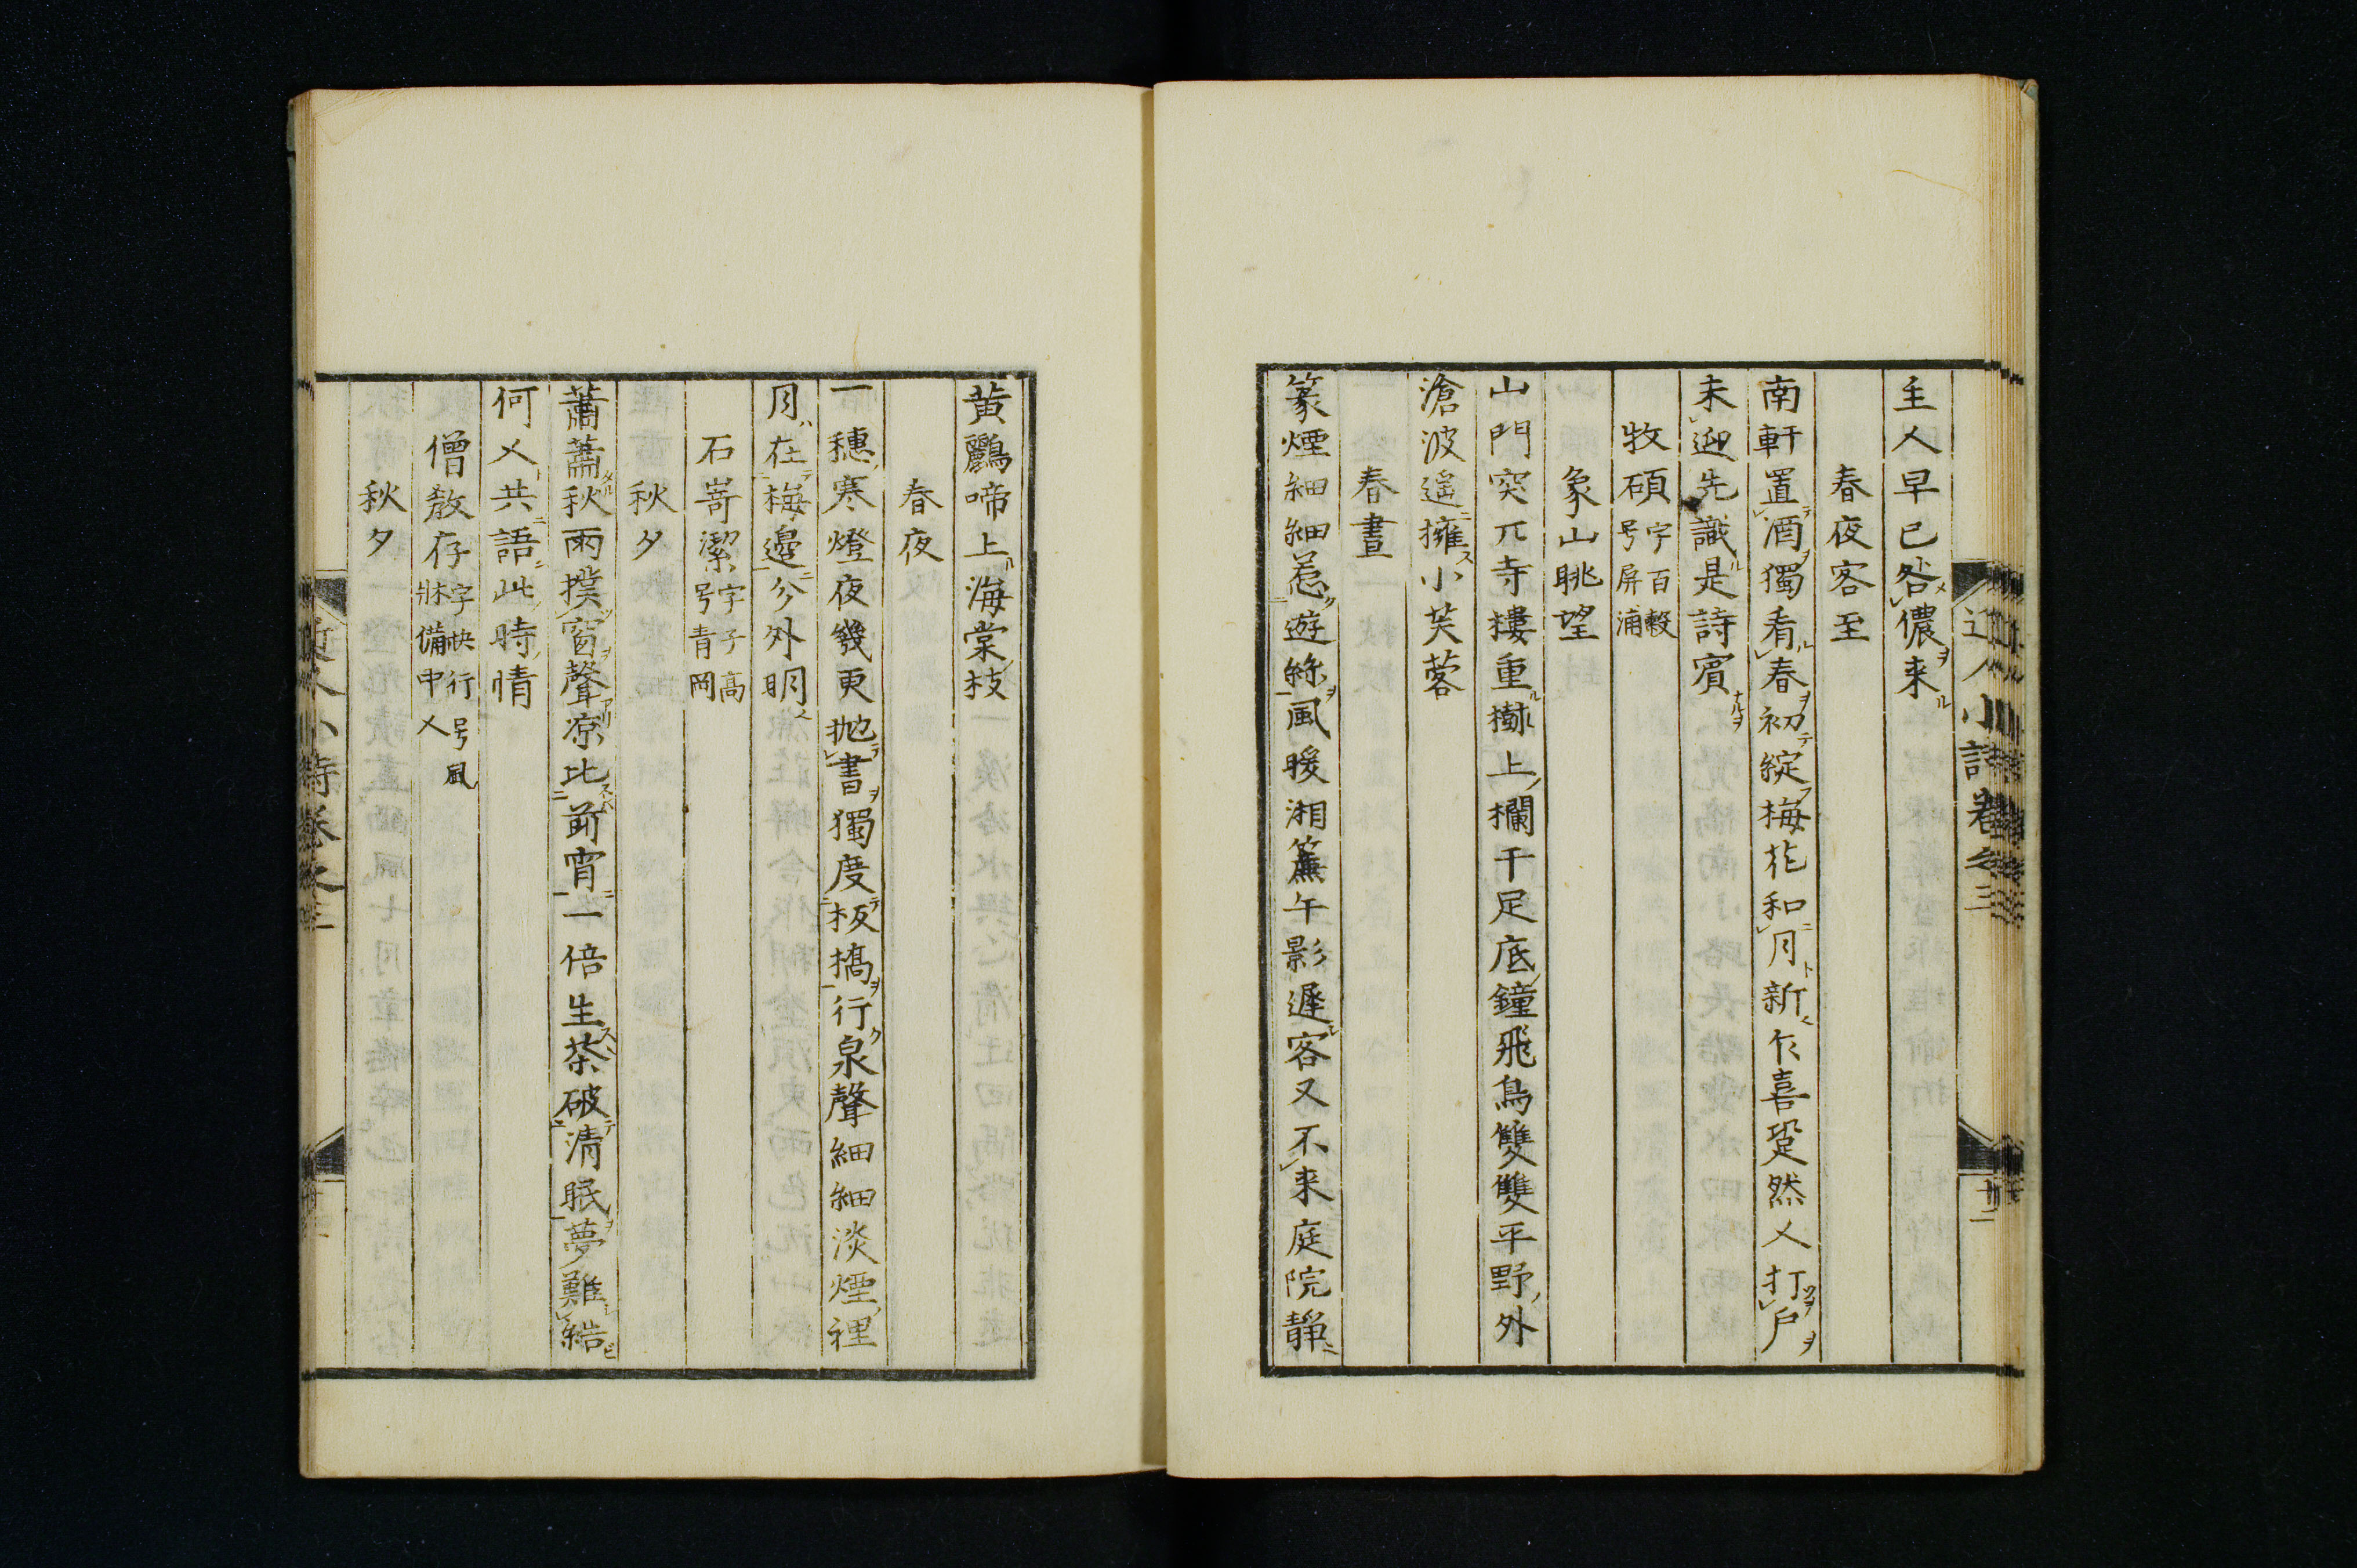 主人早已咎儂来
春夜客至
南軒置酒獨看春初綻梅花和月新乍喜跫然人打戸
未迎先識是詩賓
牧碩字百穀号屏浦
象山眺望
山門突兀寺樓重樹上欄干足底鐘飛鳥雙雙平野外
滄波遥擁小芙蓉
春晝
篆煙細細惹遊絲風暖湘簾午影遲客又不来庭院静
黄鸝啼上海棠枝
春夜
一穗寒燈夜幾更抛書獨度板橋行泉聲細細淡煙裡
月在梅邉分外明
石嵜潔字子高号青岡
秋夕
蕭蕭秋雨撲窗聲凉比前宵一倍生茶破清眠夢難結
何人共語此時情
僧教存字快行号風牀備中人
秋夕
小詩巻之三